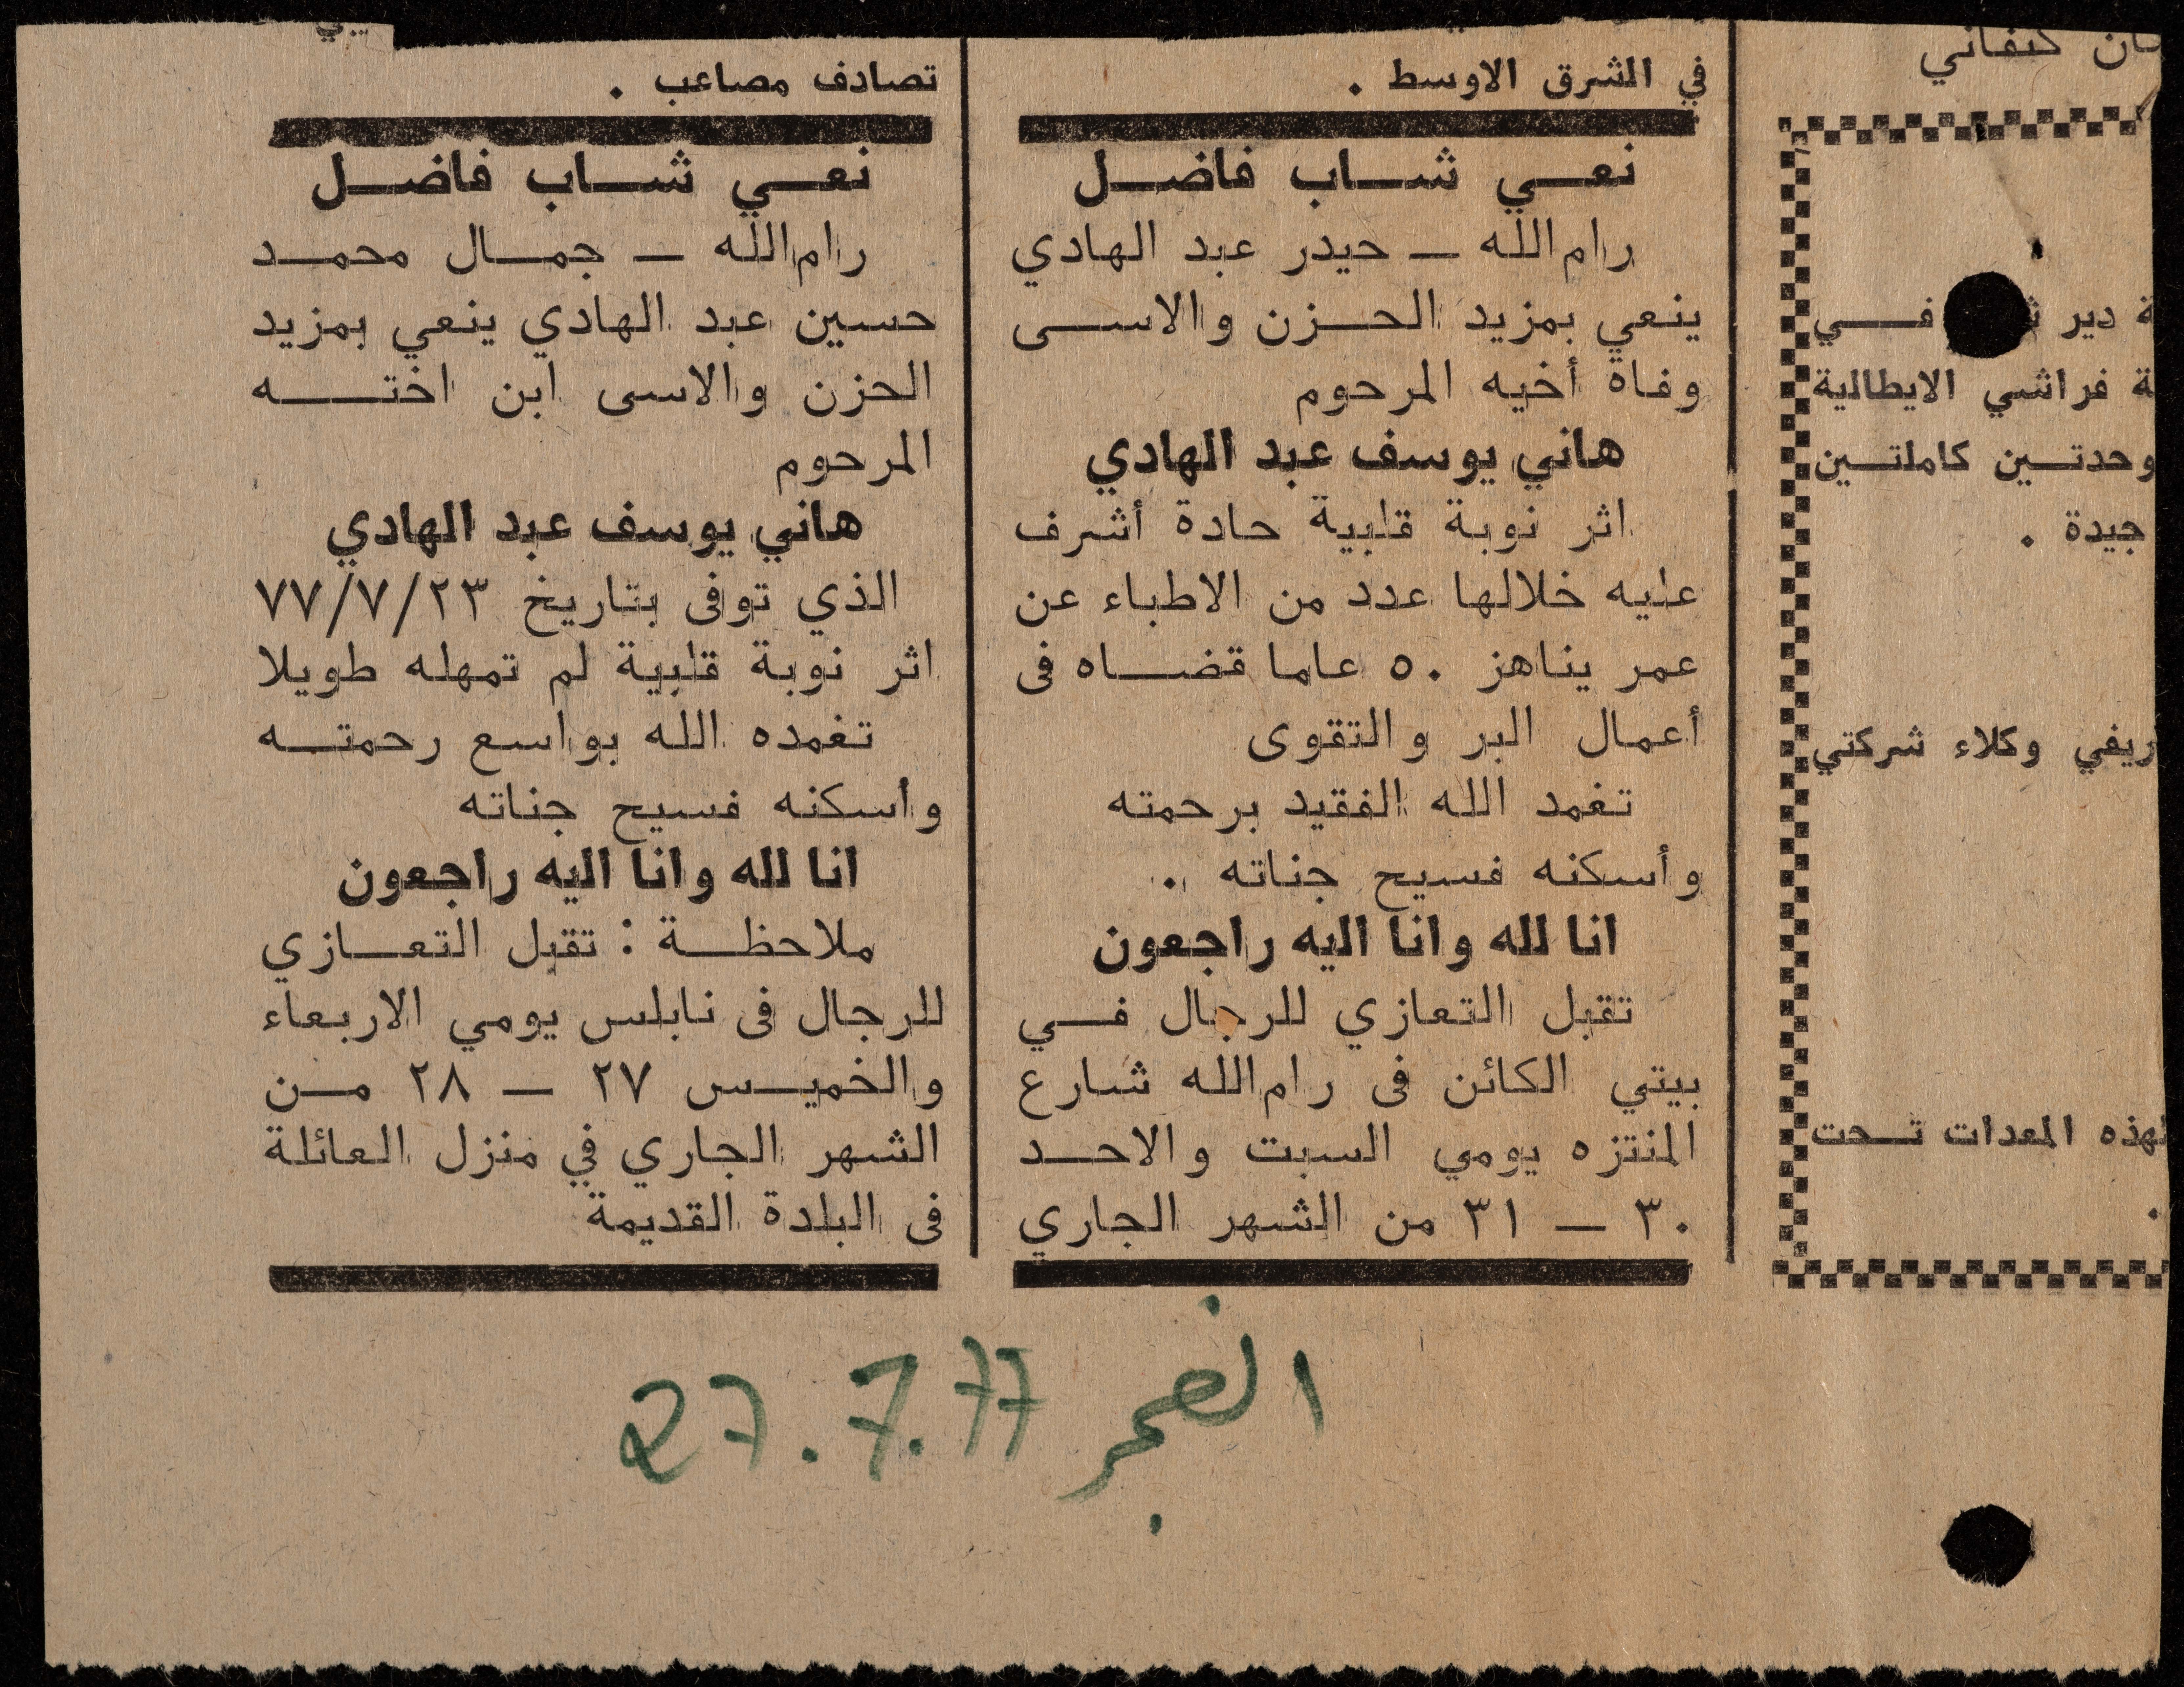 ـان كنفاني
ة دير فـــي
ة فراشي الايطالية
وحدتــين كاملتــين
جيدة .
ريفي وكلاء شركتي
لهذه المعدات تــحت
.
في الشرق الاوسط .
نعــي شــاب فاضــل
رام الله ـ حيدر عبد الهادي
ينعي بمزيد الحــزن والاســى
وفاة أخيه المرحوم
هاني يوسف عبد الهادي
اثر نوبة قلبية حادة أشرف
عليه خلالها عدد من الاطباء عن
عمر يناهز ٥٠ عاما قضــاه فى
أعمال البر والتقوى
تغمد الله الفقيد برحمته
وأسكنه فسيح جناته .
انا لله وانا اليه راجعون
تقبل التعازي للرجال فــي
بيتي الكائن فى رام الله شارع
المنتزه يومي السبت والاحــد
٣٠ ــ ٣١ من الشهر الجاري
ـيبي
تصادف مصاعب .
نعــي شــاب فاضــل
رام الله ـ جمــال محمــد
حسين عبد الهادي ينعي بمزيد
الحزن والاسى ابن اختــــه
المرحوم
هاني يوسف عبد الهادي
الذي توفى بتاريخ ٧٧/٧/٢٣
اثر نوبة قلبية لم تمهله طويلا
تغمده الله بواسع رحمتــه
وأسكنه فسيح جناته
انا لله وانا اليه راجعون
ملاحظــة : تقبل التعــازي
للرجال فى نابلس يومي الاربعاء
والخميــس ٢٧ ــ ٢٨ مــن
الشهر الجاري في منزل العائلة
فى البلدة القديمة
الفجر 27.7.77